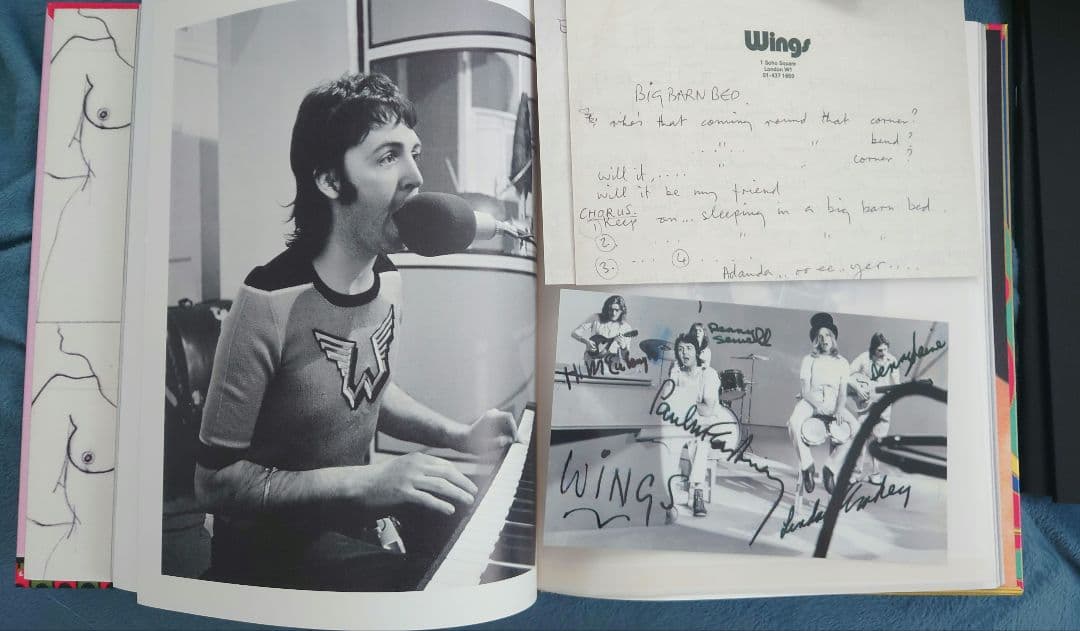 W
Wings
1 Soho Square
London W1
01-437 1603
BIG BARN BED.
who's that coming round that corner?
" " bend?
" " corner?
will it, ....
will it be my friend
CHORUS.
1) Keep on... sleeping in a big barn bed.
2. ... " " "
3. ... 4. .....
Adanda.. oo ee.. yer....
H. McCullough
Denny Seiwell
Paul McCartney
Denny Laine
WINGS
Linda McCartney